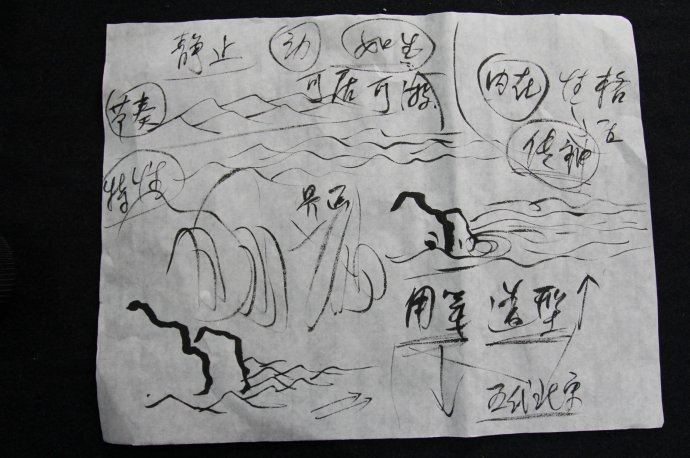 静止 动 如生
可居可游
内在 性格
节奏
传神
特性
界画
用笔 造型
五代北宋